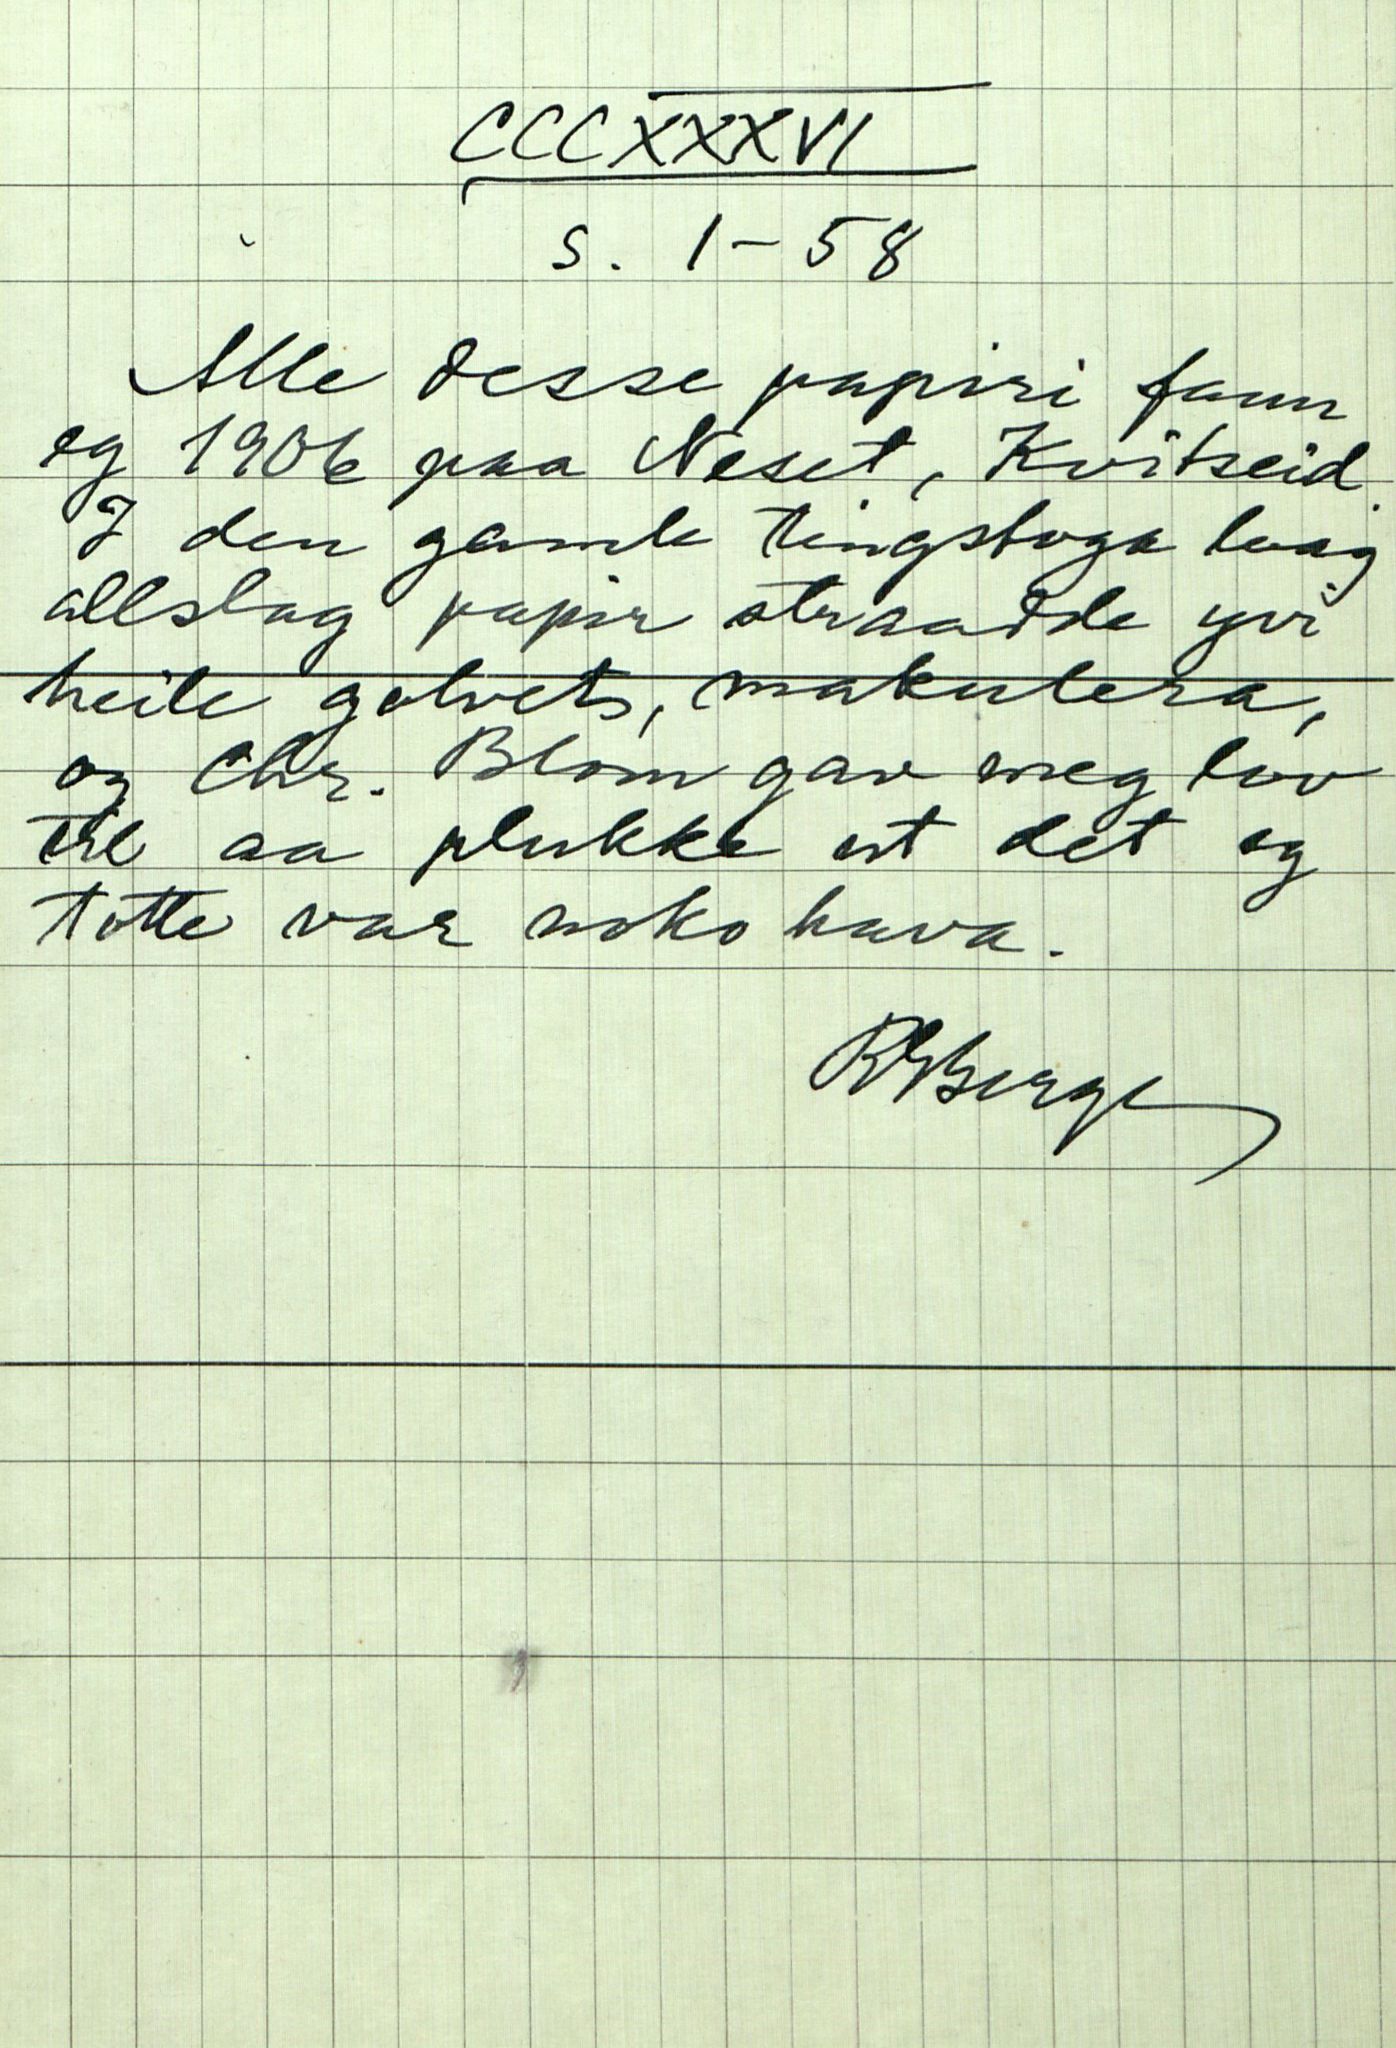 CCCXXXVI
s. 1-58
Alle desse papiri fann
eg 1906 paa Neset, Kvitseid.
I den gamle tingstoga laag
allslag papir straadde yvi
heile golvet, makulera,
og Chr. Blom gav meg lov
til aa plukke ut det eg
totte var noko hava.
RBerge